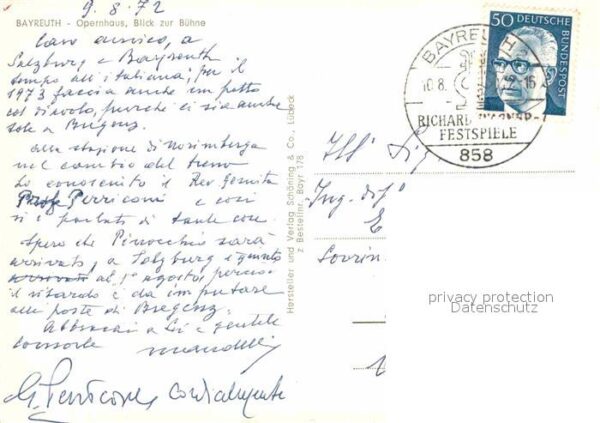 9.8.72
BAYREUTH - Opernhaus, Blick zur Bühne
Caro amico, a
Salzburg e Bayreuth
tempo all'italiana; per il
1973 faccia anche un patto
col diavolo, purché ci sia anche
sole a Bregenz.
alla stazione di Norimberga
nel cambio del treno
ho conosciuto il Rev Gesuita
Prof Perriconi e così
si è parlato di tante cose
Spero che Pinocchio sarà
arrivato, a Salzburg è giunto
al 1° agosto, perciò
il ritardo è da imputare
alle poste di Bregenz.
Abbracci a Lei e gentile
consorte
cordialmente
Hersteller und Verlag Schöning & Co., Lübeck
z Bestellnr. Bayr 178
50 DEUTSCHE BUNDESPOST
BAYREUTH
10.8.
RICHARD WAGNER-
FESTSPIELE
858
Ill
Ing.
privacy protection
Datenschutz